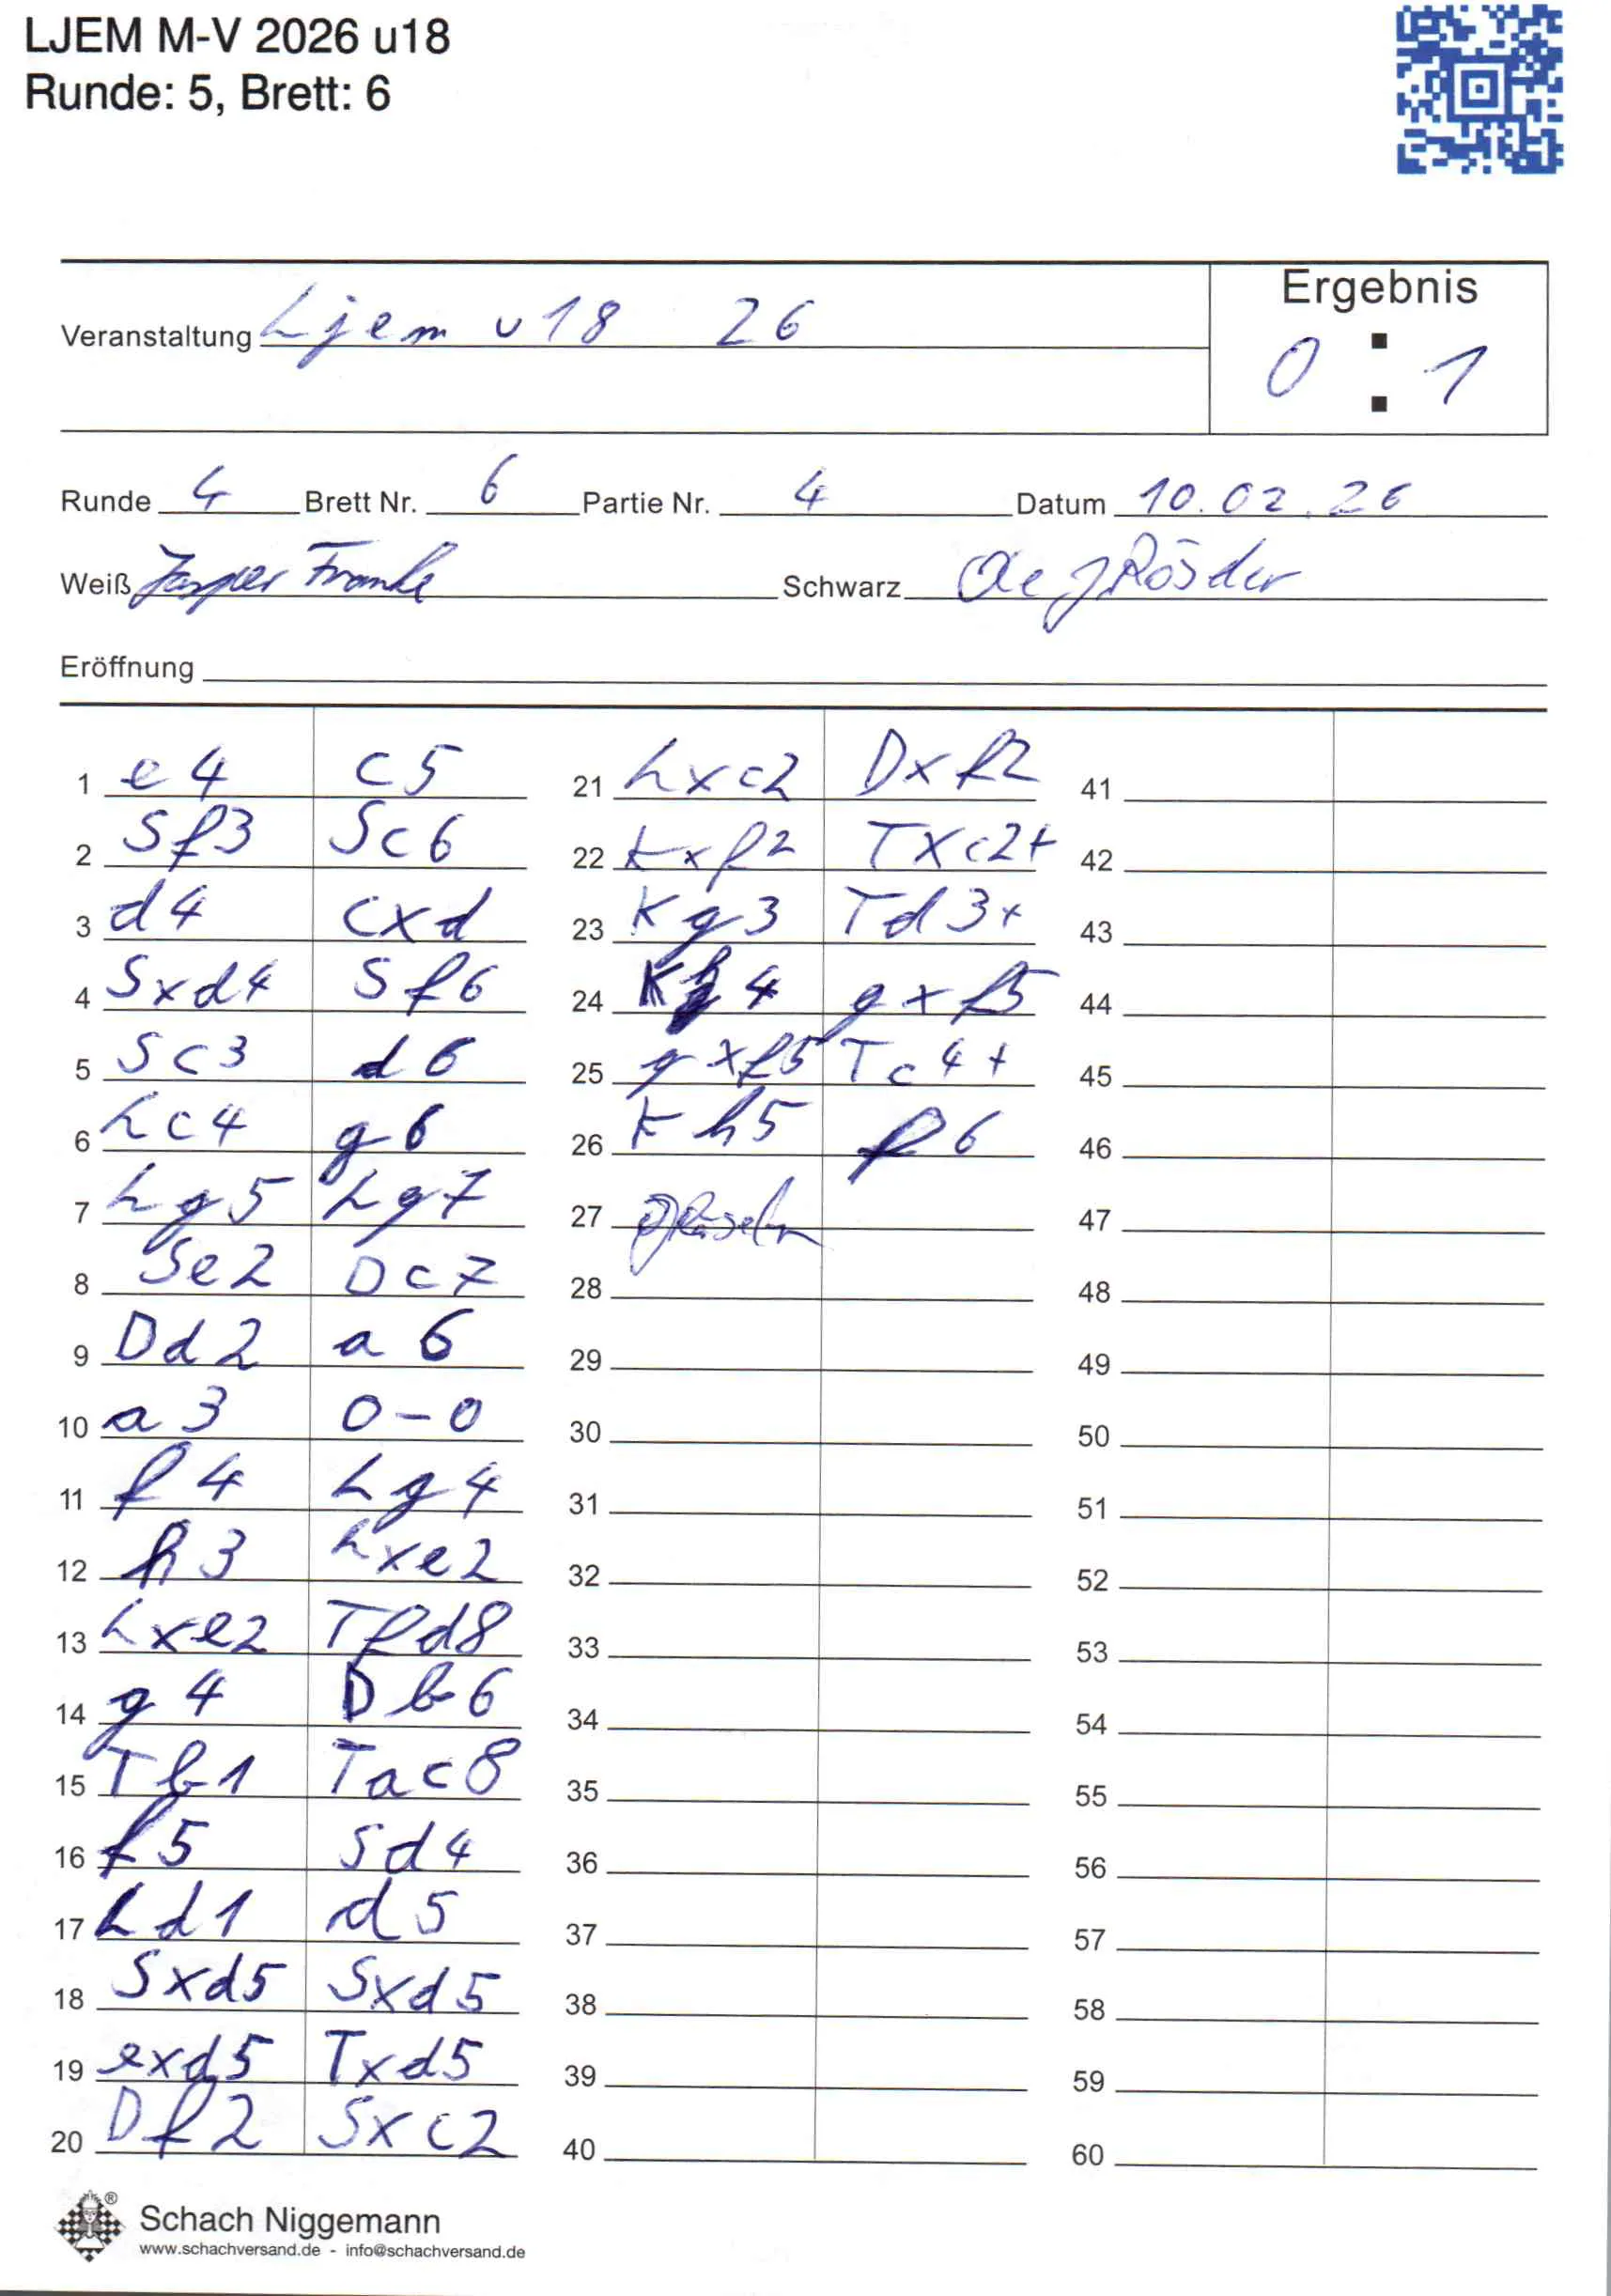 LJEM M-V 2026 u18
Runde: 5, Brett: 6
Ergebnis
Veranstaltung Ljem u18 26
0 : 1
Runde 4 Brett Nr. 6 Partie Nr. 4 Datum 10.02.26
Weiß Jasper Franke Schwarz
Eröffnung
1 e4 c5
2 Sf3 Sc6
3 d4 cxd
4 Sxd4 Sf6
5 Sc3 d6
6 Lc4 g6
7 Lg5 Lg7
8 Se2 Dc7
9 Dd2 a6
10 a3 0-0
11 f4 Lg4
12 h3 Lxe2
13 Lxe2 Tfd8
14 g4 Db6
15 Tb1 Tac8
16 f5 Sd4
17 Ld1 d5
18 Sxd5 Sxd5
19 exd5 Txd5
20 Df2 Sxc2
21 Lxc2 Dxf2
22 Kxf2 Txc2+
23 Kg3 Td3+
24 Kh4 gxf5
25 gxf5 Tc4+
26 Kh5 f6
27
28
29
30
31
32
33
34
35
36
37
38
39
40
41
42
43
44
45
46
47
48
49
50
51
52
53
54
55
56
57
58
59
60
®
Schach Niggemann
www.schachversand.de - info@schachversand.de